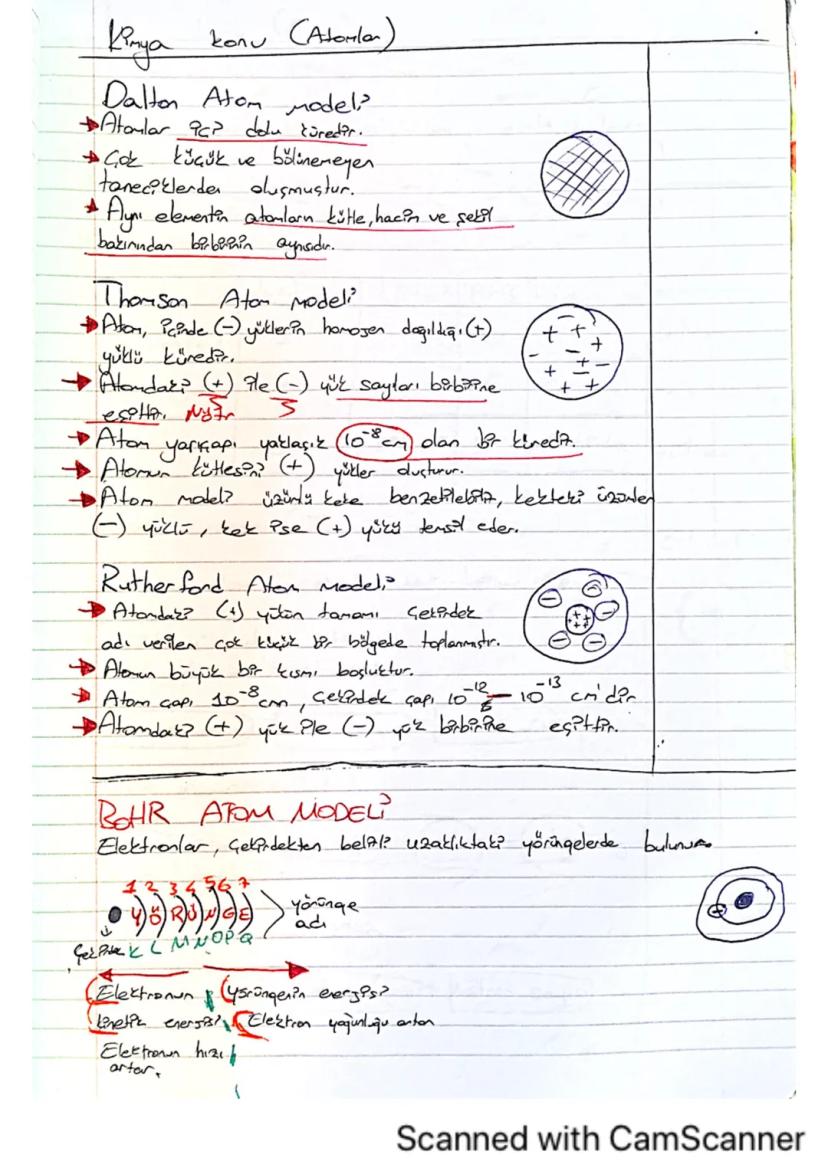 Kimya konu (Atomlar)
Dalton Atom modeli
Atomlar içi dolu küredir.
Çok küçük ve bölünemeyen
taneciklerden oluşmuştur.
Aynı elementin atomların kütle, hacim ve şekil
bakımından birbirinin aynısıdır.
Thomson Atom Modeli
Atom, içinde (-) yüklerin homojen dağıldığı (+)
yüklü küredir.
Atomdaki (+) ile (-) yük sayıları birbirine
eşittir. Nötr
Atom yarıçapı yaklaşık 10⁻⁸ cm olan bir küredir.
Atomun kütlesini (+) yükler oluşturur.
Atom modeli üzümlü keke benzetilebilir, kekteki üzümler
(-) yüklü, kek ise (+) yükü temsil eder.
Rutherford Atom Modeli
Atomdaki (+) yükün tamamı çekirdek
adı verilen çok küçük bir bölgede toplanmıştır.
Atomun büyük bir kısmı boşluktur.
Atom çapı 10⁻⁸ cm, Çekirdek çapı 10⁻¹² - 10⁻¹³ cm'dir
Atomdaki (+) yük ile (-) yük birbirine eşittir.
BOHR ATOM MODELİ
Elektronlar, çekirdekten belirli uzaklıktaki yörüngelerde bulunur.
1 2 3 4 5 6 7
Y Ö R Ü N G E yörünge
adı
Çekirdek K L M N O P Q
Elektronun yörüngenin enerjisi
kinetik enerjisi Elektron yoğunluğu artar
Elektronun hızı
artar.
Scanned with CamScanner